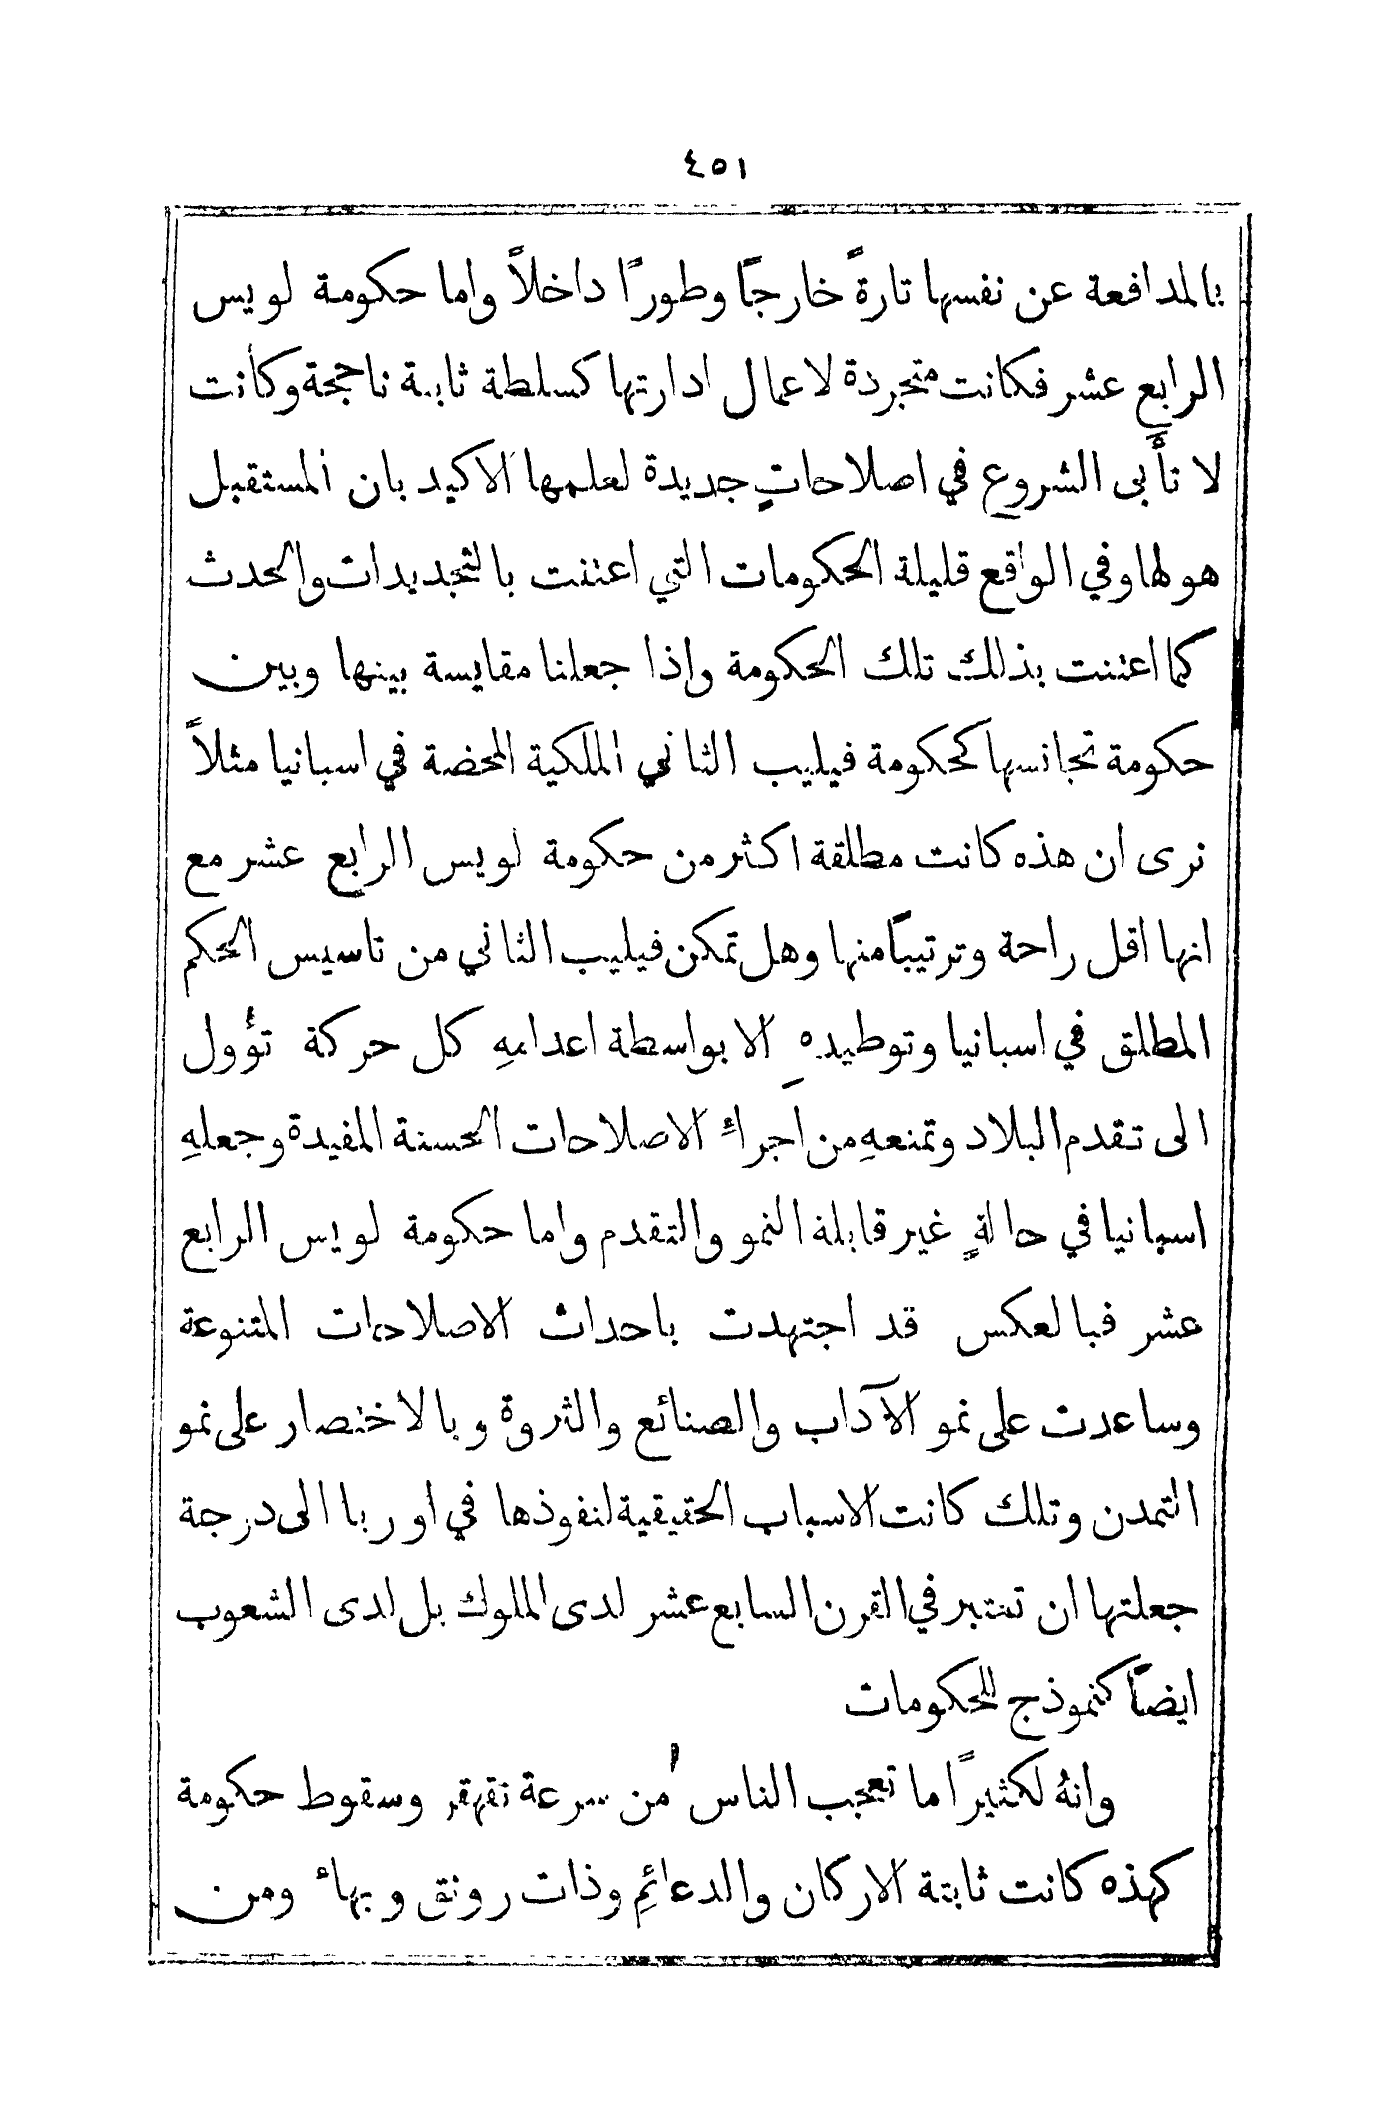 ٤٥١
بالمدافعة عن نفسها تارةً خارجاً وطوراً داخلاً واما حكومة لويس
الرابع عشر فكانت متجردة لاعمال ادارتها كسلطة ثابتة ناجحة وكانت
لا تأبى الشروع في اصلاحاتٍ جديدة لعلمها الاكيد بان المستقبل
هو لها وفي الواقع قليلة الحكومات التي اعتنت بالتجديدات والحدث
كما اعتنت بذلك تلك الحكومة واذا جعلنا مقايسة بينها وبين
حكومة تجانسها كحكومة فيليب الثاني الملكية المحضة في اسبانيا مثلاً
نرى ان هذه كانت مطلقة اكثر من حكومة لويس الرابع عشر مع
انها اقل راحة وترتيباً منها وهل تمكن فيليب الثاني من تاسيس الحكم
المطلق في اسبانيا وتوطيدهِ الا بواسطة اعدامهِ كل حركة تؤول
الى تقدم البلاد وتمنعهِ من اجراءِ الاصلاحات الحسنة المفيدة وجعلهِ
اسبانيا في حالةٍ غير قابلة النمو والتقدم واما حكومة لويس الرابع
عشر فبالعكس قد اجتهدت باحداث الاصلاحات المتنوعة
وساعدت على نمو الآداب والصنائع والثروة وبالاختصار على نمو
التمدن وتلك كانت الاسباب الحقيقية لنفوذها في اوربا الى درجة
جعلتها ان تعتبر في القرن السابع عشر لدى الملوك بل لدى الشعوب
ايضاً كنموذج للحكومات
وانهُ لكثيراً ما تعجب الناس من سرعة تقهقر وسقوط حكومة
كهذه كانت ثابتة الاركان والدعائمِ وذات رونق وبهاء ومن